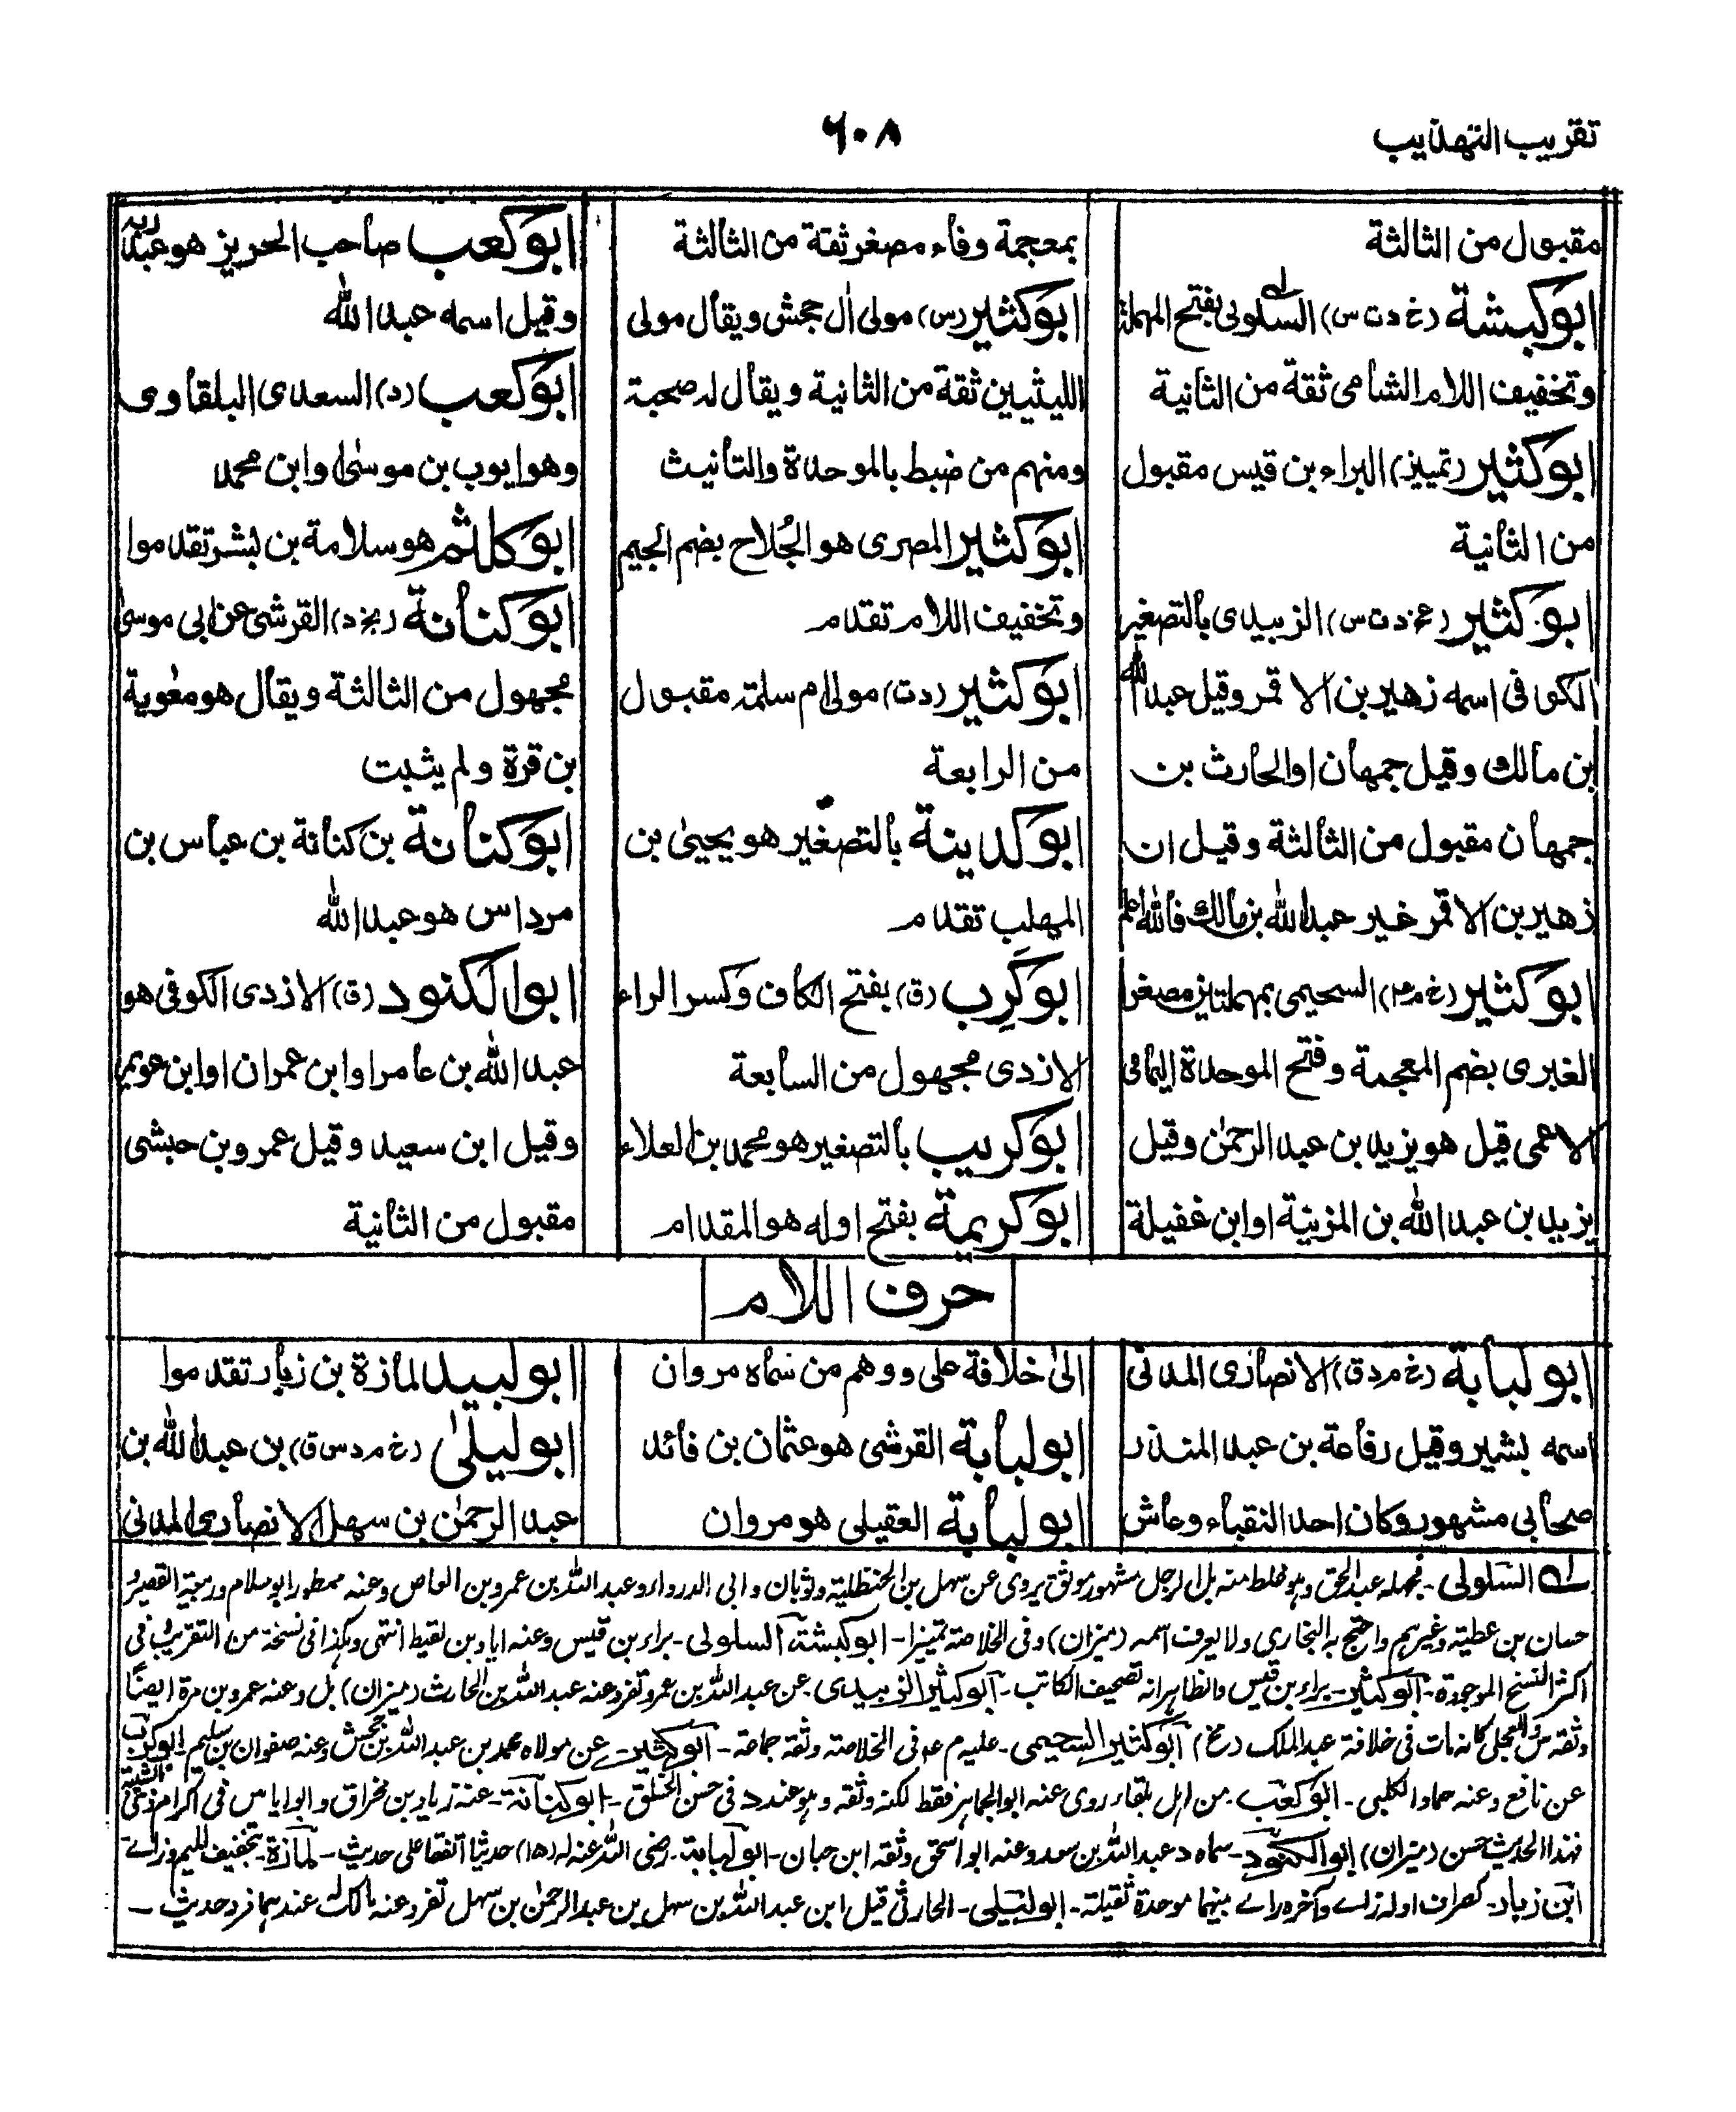 تقريب التهذيب
٦٠٨
مقبول من الثالثة
ابو كبشة (خ د ت س) السلولى بفتح المهملة
وتخفيف اللام الشامى ثقة من الثانية
ابو كثير (تمييز) البراء بن قيس مقبول
من الثانية
ابو كثير (عخ د ت س) الزبيدى بالتصغير
الكوفى اسمه زهير بن الاقمر وقيل عبد الله
بن مالك وقيل جمهان او الحارث بن
جمهان مقبول من الثالثة وقيل ان
زهير بن الاقمر غير عبد الله بن مالك فالله اعلم
ابو كثير السحيمى بمهملتين مصغرا
الغبرى بضم المعجمة وفتح الموحدة اليمامى
الاعمى قيل هو يزيد بن عبد الرحمٰن وقيل
يزيد بن عبد الله بن المزينة او ابن غفيلة
بمعجمة وفاء مصغر ثقة من الثالثة
ابو كثير (س) مولى اٰل جحش ويقال مولى
الليثيين ثقة من الثانية ويقال له صحبة
ومنهم من ضبط بالموحدة والتأنيث
ابو كثير المصرى هو الجُلاح بضم الجيم
وتخفيف اللام تقدم
ابو كثير (د ت) مولى ام سلمة مقبول
من الرابعة
ابو كدينة بالتصغير هو يحيىٰ بن
المهلب تقدم
ابو كَرِب (ق) بفتح الكاف وكسر الراء
الازدى مجهول من السابعة
ابو كريب بالتصغير هو محمد بن العلاء
ابو كريمة بفتح اوله هو المقدام
ابو كعب صاحب الحرير هو عبد ربه
وقيل اسمه عبد الله
ابو كعب (د) السعدى البلقاوى
وهو ايوب بن موسىٰ او ابن محمد
ابو كلثم هو سلامة بن بشر تقدموا
ابو كنانة (بخ د) القرشى عن ابى موسىٰ
مجهول من الثالثة ويقال هو معٰوية
بن قرة ولم يثبت
ابو كنانة بن كنانة بن عباس بن
مرداس هو عبد الله
ابو الكنود (ق) الازدى الكوفى هو
عبد الله بن عامر او ابن عمران او ابن عويمر
وقيل ابن سعيد وقيل عمرو بن حبشى
مقبول من الثانية
حرف اللام
ابو لبابة (خ م د ق) الانصارى المدنى
اسمه بشير وقيل رفاعة بن عبد المنذر
صحابى مشهور وكان احد النقباء وعاش
الىٰ خلافة على ووهم من سماه مروان
ابو لبابة القرشى هو عثمان بن فائد
ابو لبابة العقيلى هو مروان
ابو لبيد لمازة بن زبار تقدموا
ابو ليلىٰ (خ م د س ق) بن عبد الله بن
عبد الرحمٰن بن سهل الانصارى المدنى
السلولى - جهله عبد الحق وهو غلط منه بل الرجل مشهور موثق يروى عن سهل بن الحنظلية وثوبان وابى الدرداء وعبد الله بن عمرو بن العاص وعنه ممطور ابو سلام وربيعة القصير و
حسان بن عطية وغيرهم واحتج به البخارى ولا يعرف اسمه (ميزان) وفى الخلاصة تمييزا - ابو كبشة السلولى - براء بن قيس وعنه اياد بن لقيط انتهى وهكذا فى نسخة من التقريب وفى
اكثر النسخ الموجودة - ابو كثير - براء بن قيس والظاهر انه تصحيف الكاتب - ابو كثير الزبيدى عن عبد الله بن عمرو تفرد عنه عبد الله بن الحارث (ميزان) بل وعنه عمرو بن مرة ايضًا
وثقه س والعجلى كانه مات فى خلافة عبد الملك ابو كثير السحيمى - فى الخلاصة وثقه جماعة - ابو كثير - عن مولاه محمد بن عبد الله بن جحش وعنه صفوان بن سليم - ابو كرب
عن نافع وعنه حماد الكلبى - ابو كعب - من اهل بلقاء روى عنه ابو الجماهر فقط لكنه وثقه وهو عند د فى حسن الخلق - ابو كنانة - عنه زياد بن مخراق وابو اياس فى اكرام ذى الشيبة
فهذا الحديث حسن (ميزان) ابو الكنود - سماه د عبد الله بن سعد وعنه ابو اسحق وثقه ابن حبان - ابو لبابة - رضى الله عنه له (١٥) حديثا اتفقا على حديث - لمازة - تخفيف الميم وزاے
ابن زبار - كصراف اوله زاے وآخره راے بينهما موحدة ثقيلة - ابو ليلى - الحارثى قيل ابن عبد الله بن سهل بن عبد الرحمٰن بن سهل تفرد عنه مالك له عندهما فرد حديث -